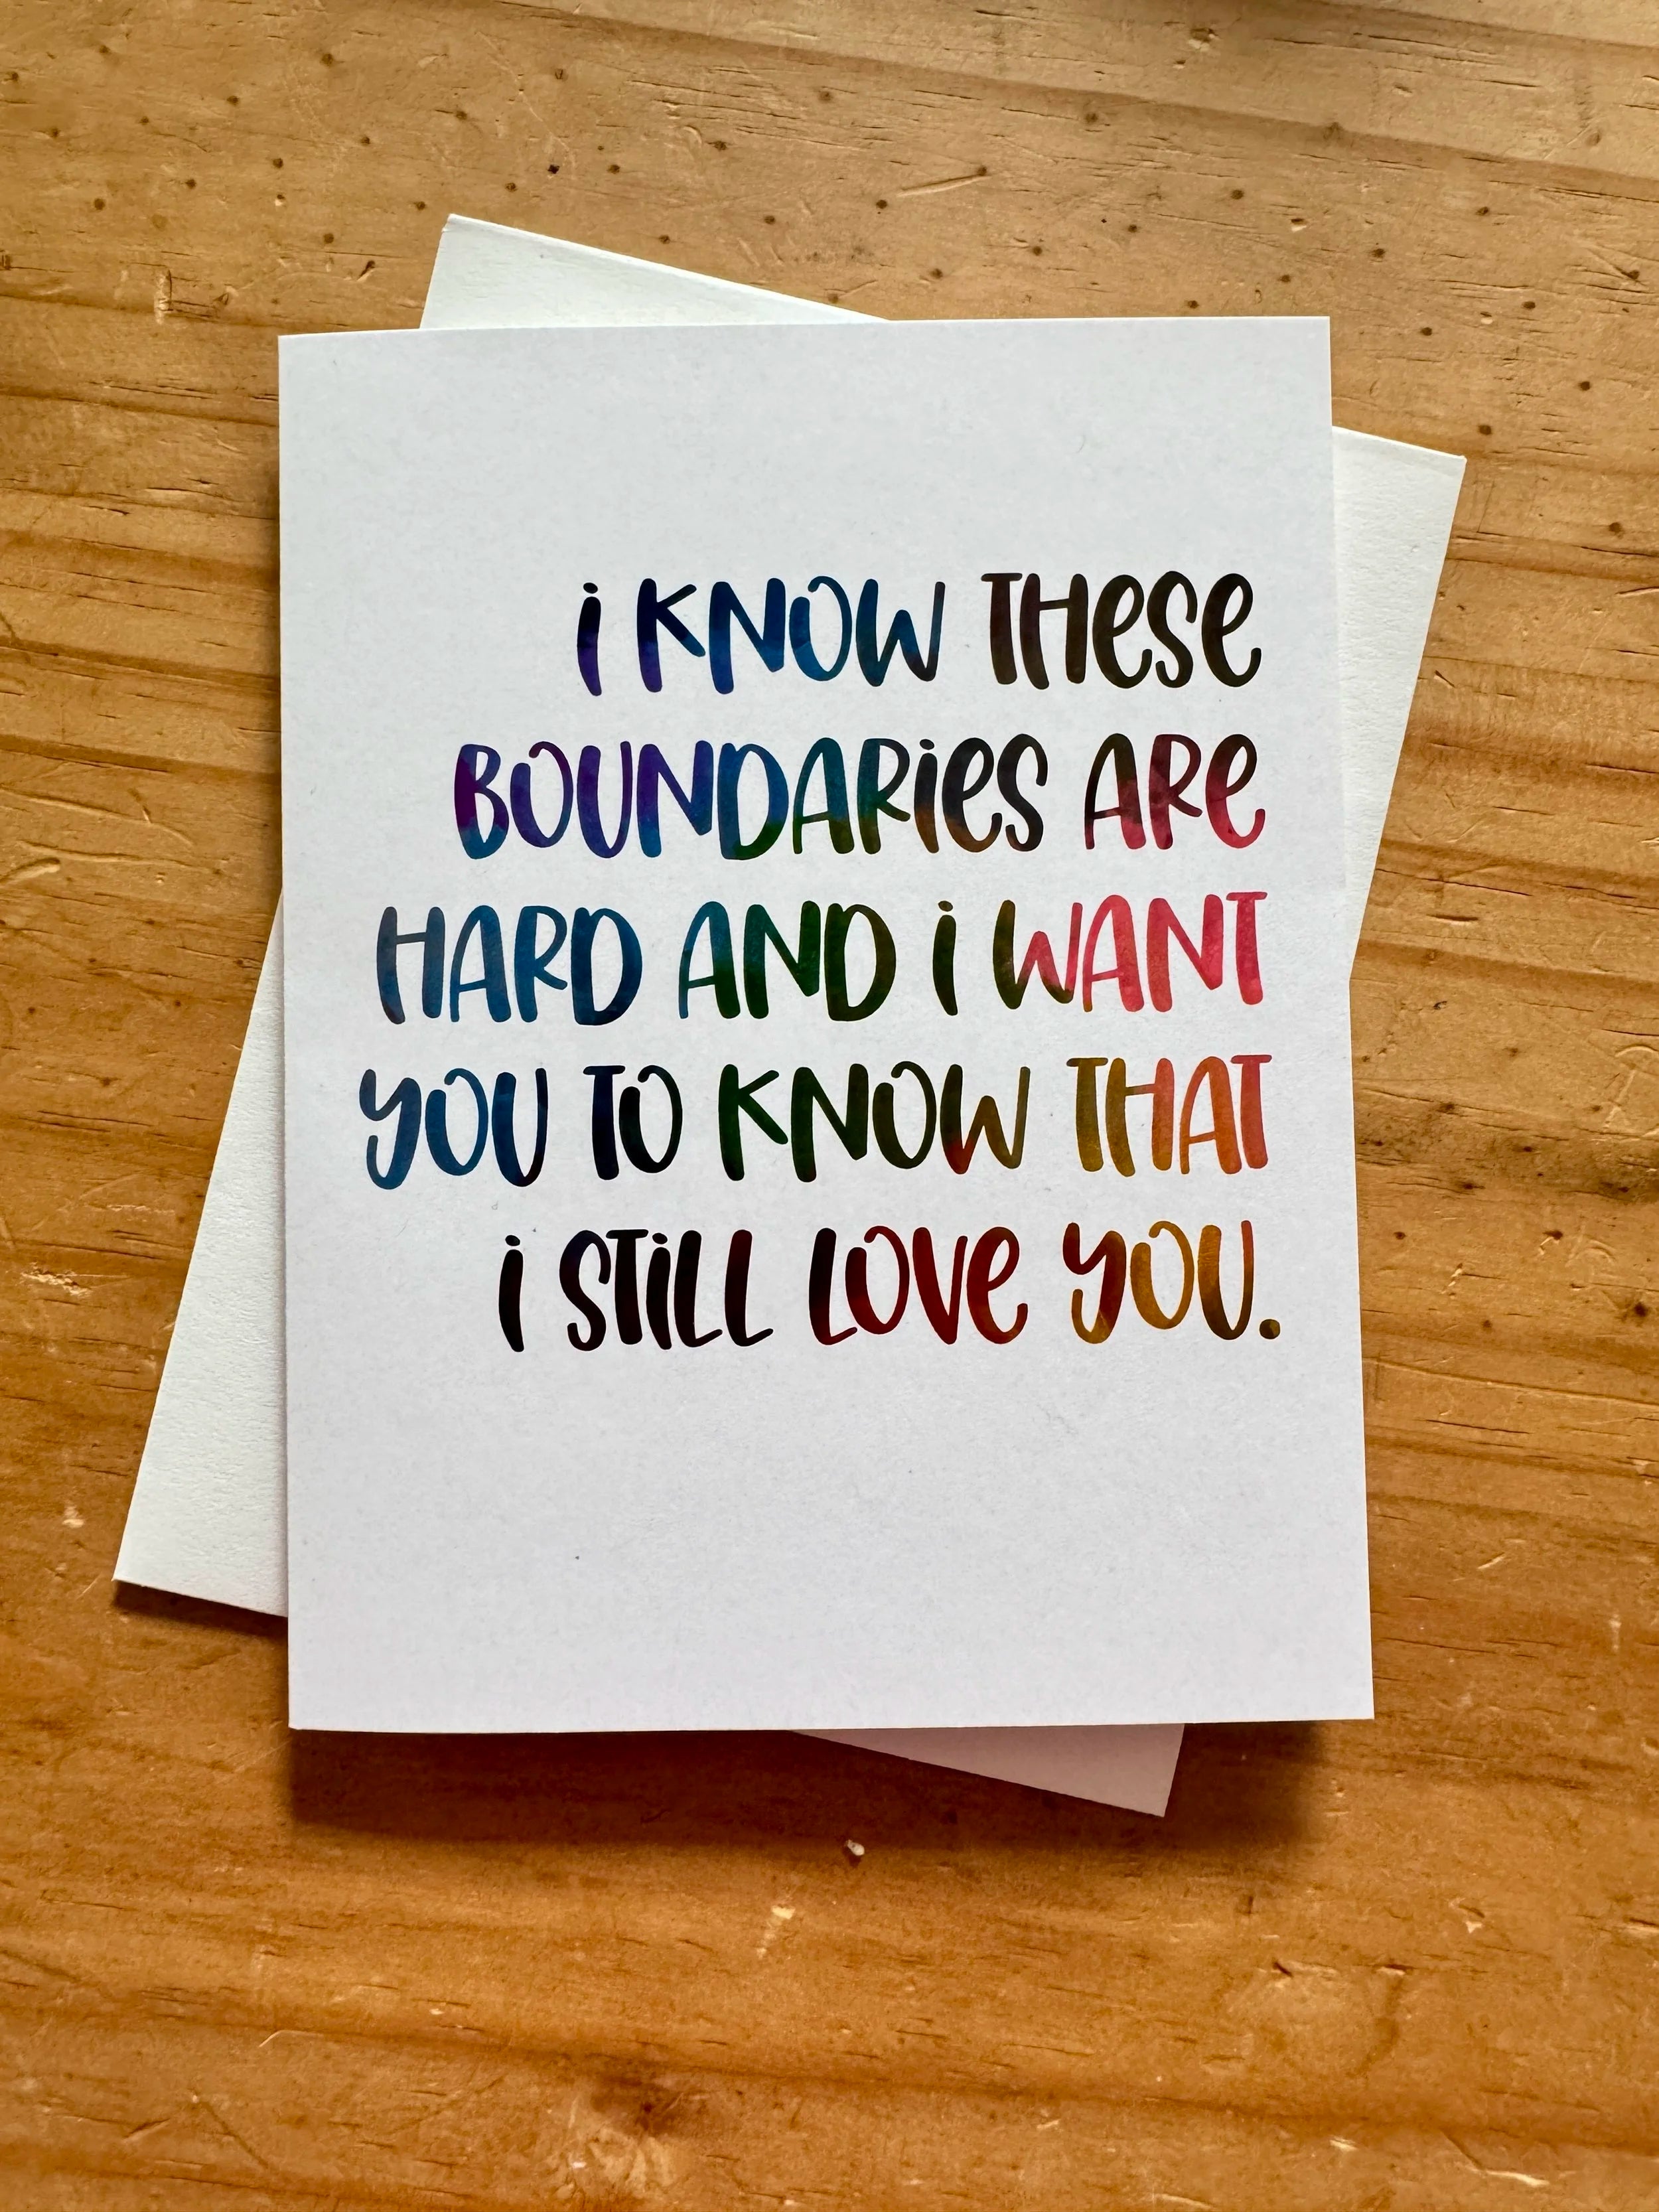 i KNOW THESE
BOUNDARiES ARE
HARD AND i WANT
YOU TO KNOW THAT
i STiLL LOVE YOU.